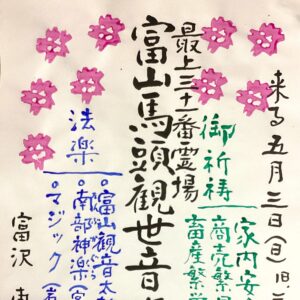 来る五月三日(日)旧三
最上三十一番霊場
富山馬頭観世音
御祈祷
家内安
商売繁
畜産繁
法楽
○富山観音太
○南部神楽(宮
○マジック(岩
富沢